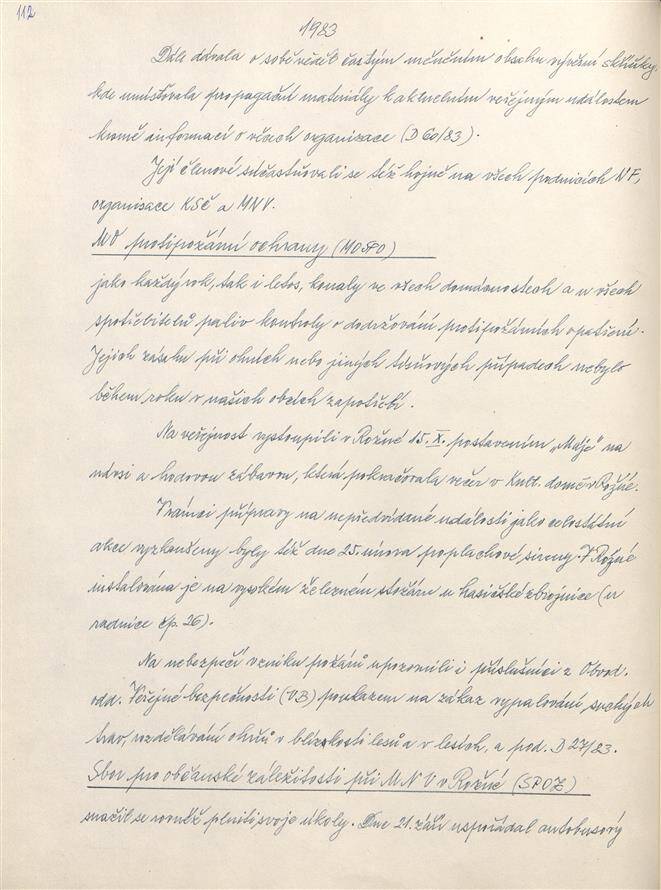 112
1983
Dále dávala o sobě vědět častým měněním obsahu vývěsní skřínky,
kde umísťovala propagační materiály k aktuelním veřejným událostem
kromě informací o věcech organisace (D 60/83).
Její členové súčastňovali se též hojně na všech podnicích NF,
organisace KSČ a MNV.
MO protipožární ochrany (MOSPO)
jako každý rok, tak i letos, konaly ve všech domácnostech a u všech
spotřebitelů paliv kontroly o dodržování protipožárních opatření.
Jejich zásahu při ohních nebo jiných tísňových případech nebylo
během roku v našich obcích zapotřebí.
Na veřejnost vystoupili v Rožné 15. X. postavením „Máje" na
návsi a hodovou zábavou, která pokračovala večer v Kult. domě v Rožné.
V rámci přípravy na nepředvídané události jako celostátní
akce vyzkoušeny byly též dne 25. února poplachové sireny. V Rožné
instalována je na vysokém železném stožáru u hasičské zbrojnice (u
radnice čp. 26).
Na nebezpečí vzniku požárů upozornili i příslušníci z Obvod.
odd. Veřejné bezpečnosti (VB) poukazem na zákaz vypalování suchých
trav, rozdělávání ohňů v blízkosti lesů a v lesích, a pod. D 27/83.
Sbor pro občanské záležitosti při MNV v Rožné (SPOZ)
snažil se rovněž plniti svoje úkoly. Dne 21. září uspořádal autobusový